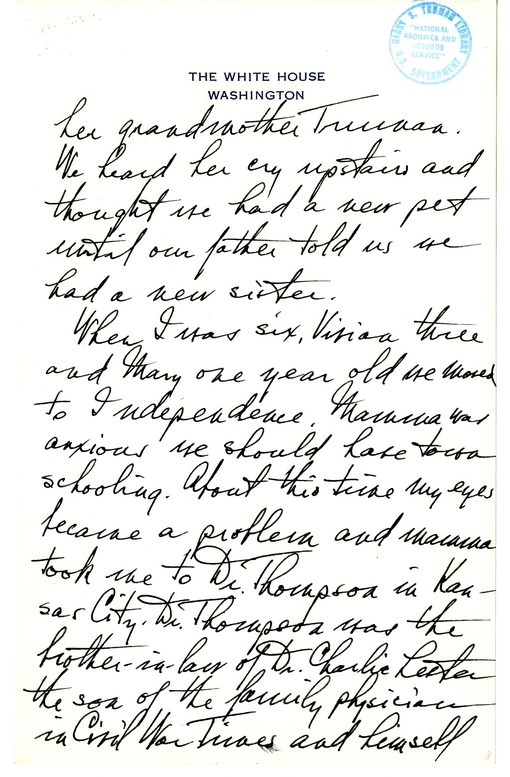 HARRY S. TRUMAN LIBRARY
"NATIONAL
ARCHIVES AND
RECORDS
SERVICE"
U.S. GOVERNMENT
THE WHITE HOUSE
WASHINGTON
her grandmother Truman.
We heard her cry upstairs and
thought we had a new pet
until our father told us we
had a new sister.
When I was six, Vivian three
and Mary one year old we moved
to Independence. Mamma was
anxious we should have town
schooling. About this time my eyes
became a problem and mamma
took me to Dr. Thompson in Kan-
sas City. Dr. Thompson was the
brother-in-law of Dr. Charlie Lester
the son of the family physician
in Civil War Times and himself